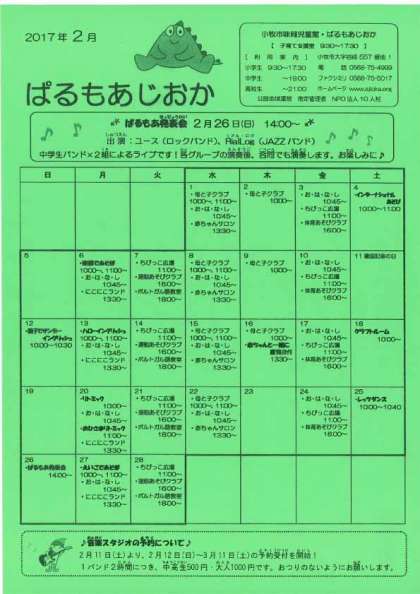 2017年2月
ぱるもあじおか
小牧市味岡児童館・ぱるもあじおか
【 子育て支援室 9:30～17:30 】
【 利 用 案 内 】
小学生 9:30～17:30
中学生 ～19:00
高校生 ～21:00
電 話 0568-75-4999
ファクシミリ 0568-75-5017
ぱるもあ発表会 2月26日(日) 14:00～
出演：ユース(ロックバンド)、RialLog(JAZZバンド)
中学生バンド×2組によるライブです！各グループの演奏後、合同でも演奏します。お楽しみに♪
日 月 火 水 木 金 土
1
・母と子クラブ
10:00～、11:00～
・お・は・な・し
10:45～
・赤ちゃんサロン
13:30～
2
・母と子クラブ
10:00～
3
・お・は・な・し
10:45～
・ちびっこ広場
11:00～
・体育あそびクラブ
16:00～
4
・インターナショナル
あそび
10:00～11:00
5
6
10:00～、11:00～
・お・は・な・し
10:45～
・にこにこランド
13:30～
7
・ちびっこ広場
11:00～
・運動あそびクラブ
16:00～
・ポルトガル語教室
18:00～
8
・母と子クラブ
10:00～、11:00～
・お・は・な・し
10:45～
・赤ちゃんサロン
13:30～
9
・母と子クラブ
10:00～
10
・お・は・な・し
10:45～
・ちびっこ広場
11:00～
・体育あそびクラブ
16:00～
11 建国記念の日
12
・親子でサンデー
イングリッシュ
10:00～10:30
13
・ハローイングリッシュ
10:00～、11:00～
・お・は・な・し
10:45～
・にこにこランド
13:30～
14
・ちびっこ広場
11:00～
・運動あそびクラブ
16:00～
・ポルトガル語教室
18:00～
15
・母と子クラブ
10:00～、11:00～
・お・は・な・し
10:45～
・赤ちゃんサロン
13:30～
16
・母と子クラブ
10:00～
・赤ちゃんと一緒に
13:30～
17
・お・は・な・し
10:45～
・ちびっこ広場
11:00～
・体育あそびクラブ
16:00～
18
クラフトルーム
10:00～
19
20
・リトミック
10:00～
・お・は・な・し
10:45～
・おひさまリトミック
11:00～
・にこにこランド
13:30～
21
・ちびっこ広場
11:00～
・運動あそびクラブ
16:00～
・ポルトガル語教室
18:00～
22
・母と子クラブ
10:00～、11:00～
・お・は・な・し
10:45～
・赤ちゃんサロン
13:30～
23
24
・お・は・な・し
10:45～
・ちびっこ広場
11:00～
・体育あそびクラブ
16:00～
25
・レッツダンス
10:00～10:40
26
・ぱるもあ発表会
14:00～
27
・えいごであそぼ
10:00～、11:00～
・お・は・な・し
10:45～
・にこにこランド
13:30～
28
・ちびっこ広場
11:00～
・運動あそびクラブ
16:00～
・ポルトガル語教室
18:00～
♪音楽スタジオの予約について♪
2月11日(土)より、2月12日(日)～3月11日(土)の予約受付を開始！
1バンド2時間につき、中高生500円・大人1000円です。おつりのないようにお願いします。